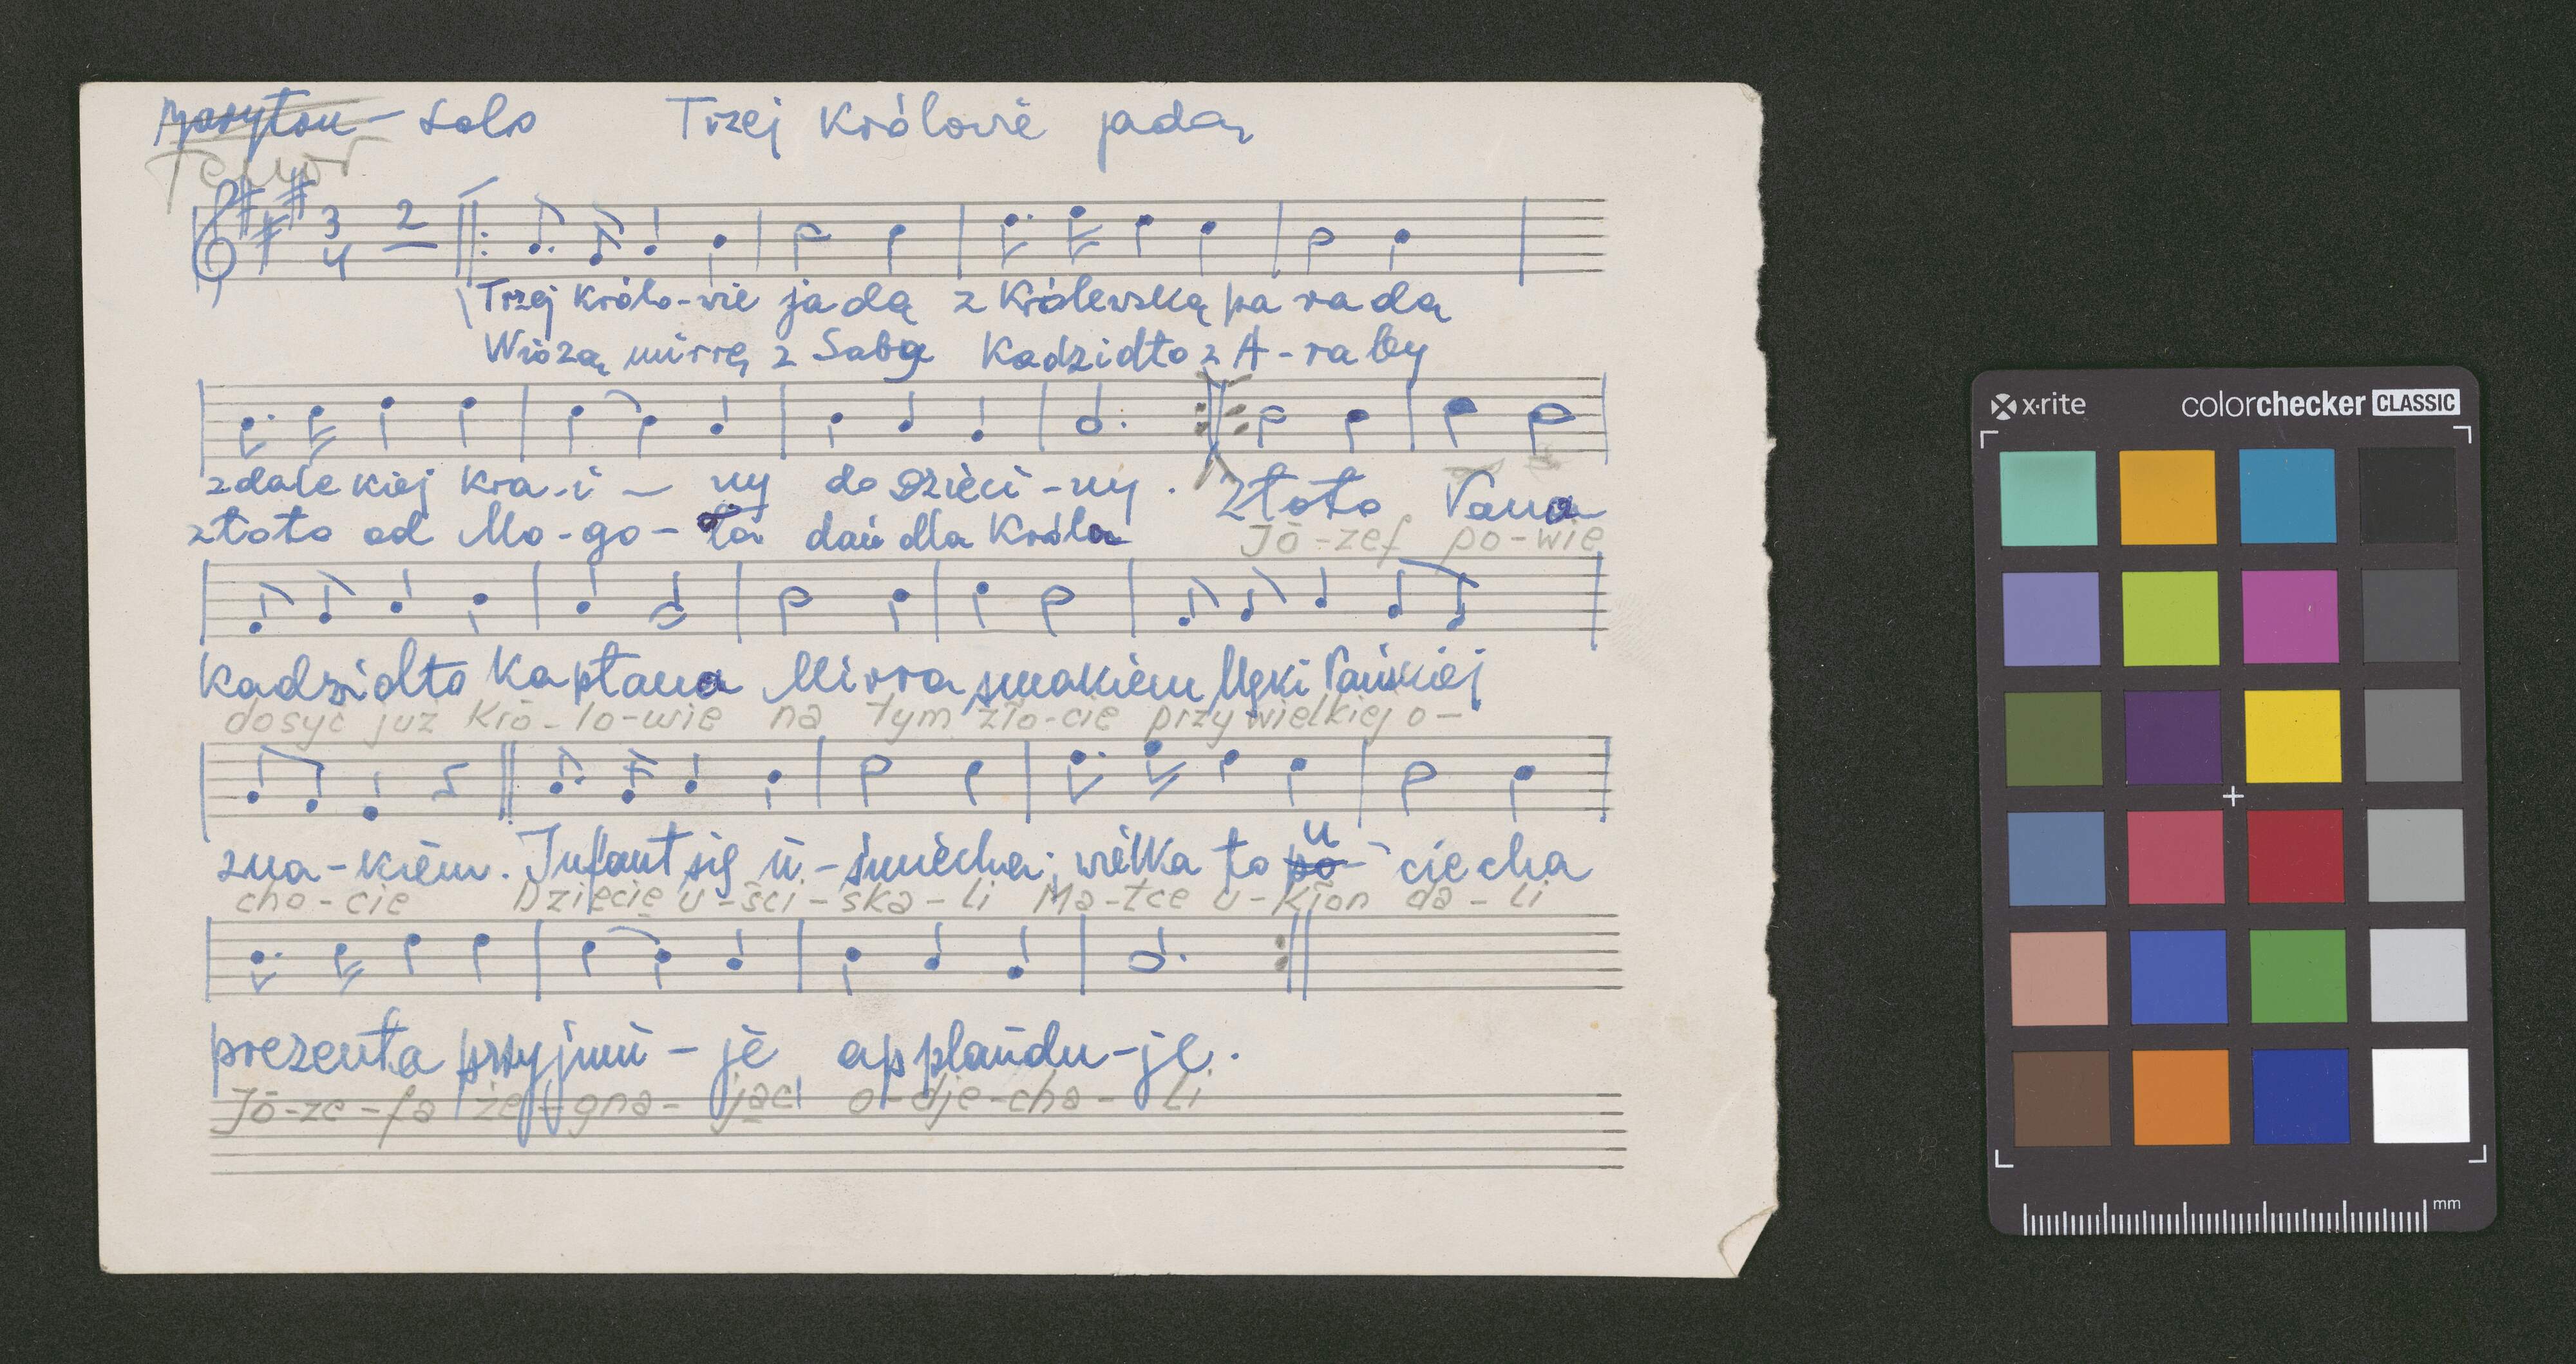 Baryton – Solo Trzej Królowie jadą
Tenor
3 2
4
Trzej Królo-wie jadą z Królewską pa radą
Wiozą mirrę z Saby Kadzidło z A-ra by
zdale kiej kra-i – ny do Dzieci-ny.
złoto Pana
złoto od Mo-go-ła dań dla Króla
Jó-zef po-wie
Kadzidło Kapłana Mirra smakiem Męki Pańskiej
dosyć już Kró-lo-wie na tym zło-cie przy wielkiej o-
zna-kiem. Infant się u-śmiecha; wielka to po- u ciecha
cho-cie Dziecię u-ści-ska-li Ma-tce u-kłon da-li
prezenta przyjmu-je applaudu-je.
Jó-ze-fa że-gna-jąc o-dje-cha-li
x-rite colorchecker CLASSIC
mm